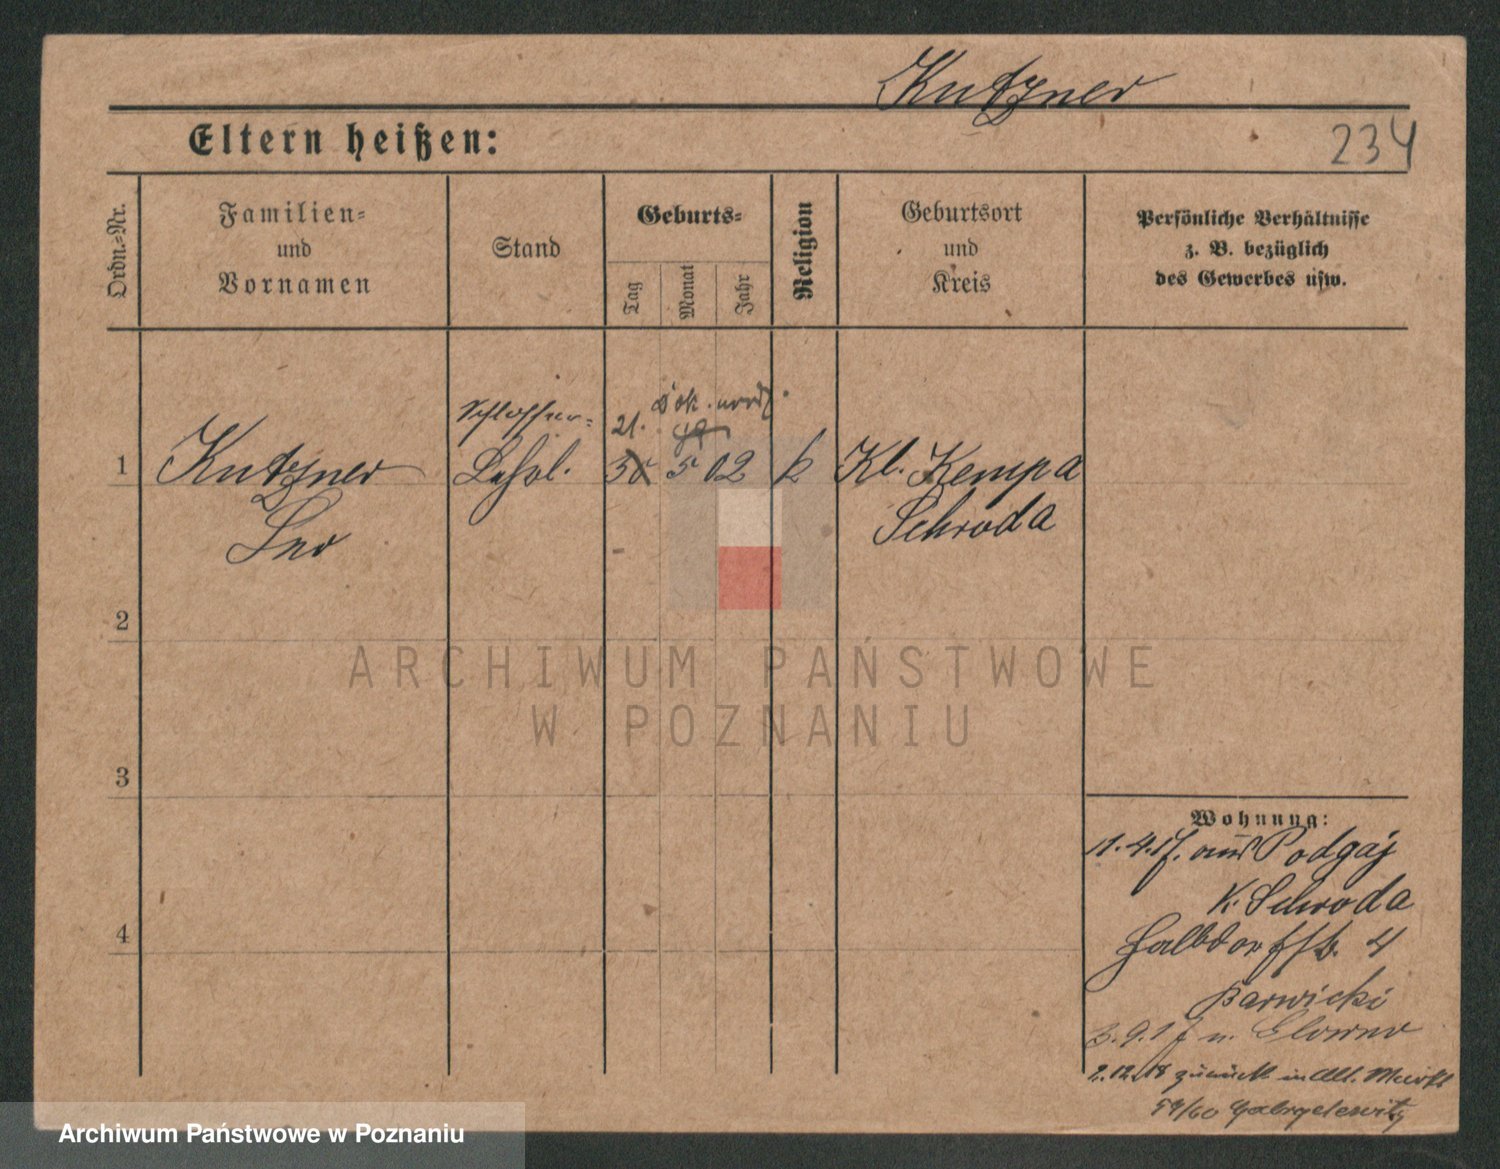 Kutzner
Eltern heißen:
234
Ordn.-Nr.
Familien-
und
Vornamen
Stand
Geburts-
Tag
Monat
Jahr
Religion
Geburtsort
und
Kreis
Persönliche Verhältnisse
z. B. bezüglich
des Gewerbes usw.
1
Kutzner
Leo
Schlosser-
Lehrl.
21.
5 02
k
Kl. Kempa
Schroda
2
3
4
ARCHIWUM PAŃSTWOWE
W POZNANIU
Wohnung:
1.4.17. aus Podgaj
K. Schroda
Halbdorfstr. 4
Barwicki
3.9.17 n. Glowno
2.12.18 zurück in All. Markt
59/60 Gabryelewitz
Archiwum Państwowe w Poznaniu